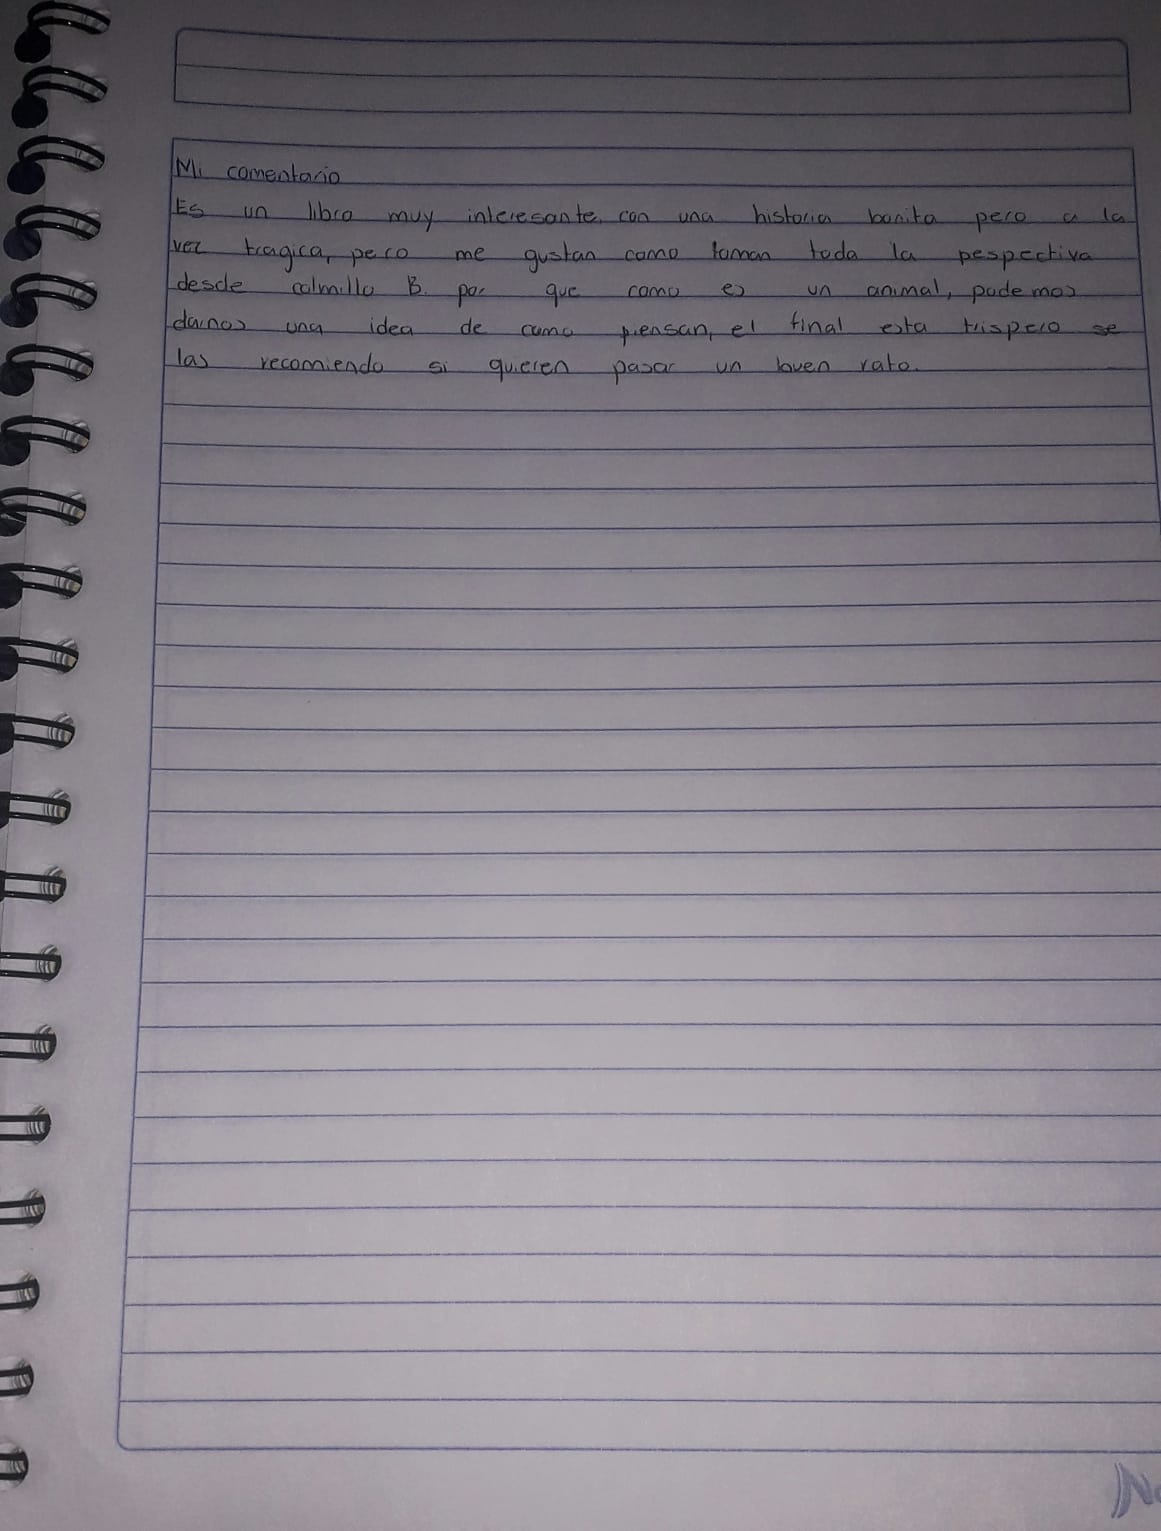 Mi comentario
Es un libro muy interesante, con una historia bonita pero a la
vez tragica, pero me gustan como toman toda la pespectiva
desde colmillo B. por que como es un animal, podemos
darnos una idea de como piensan, el final esta trispero se
las recomiendo si quieren pasar un buen rato.